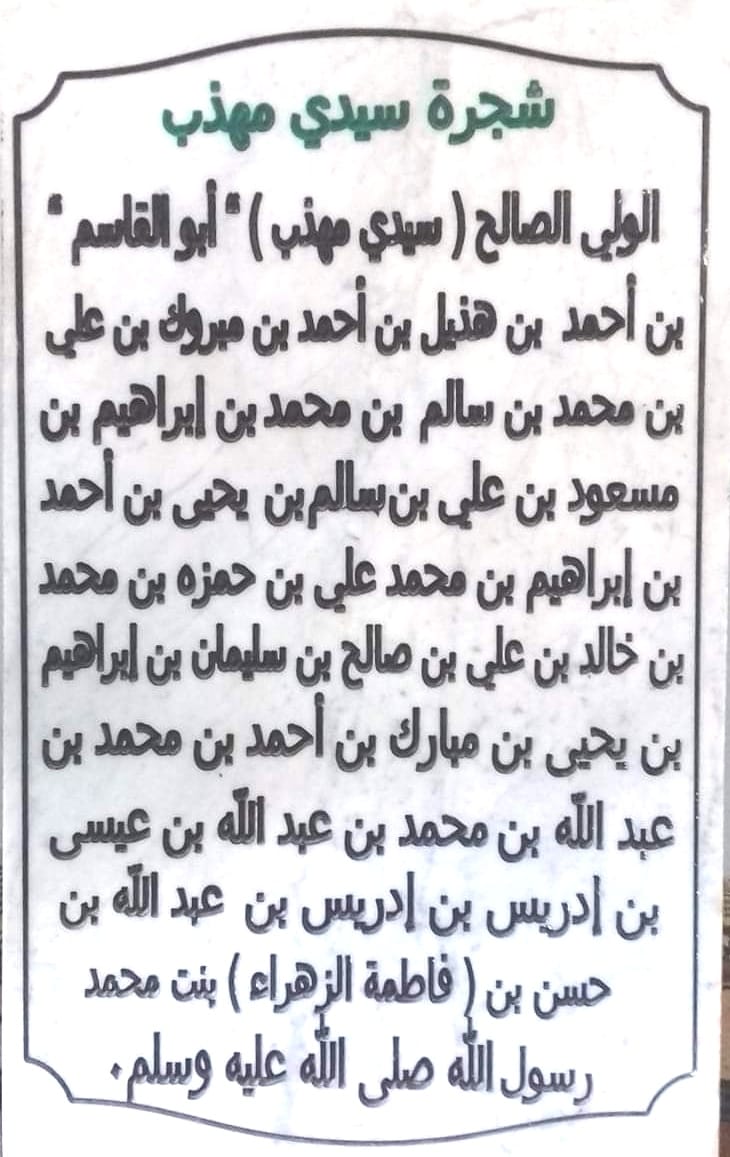 شجرة سيدي مهذب
الولي الصالح ( سيدي مهذب ) " أبو القاسم "
بن أحمد بن هذيل بن أحمد بن مبروك بن علي
بن محمد بن سالم بن محمد بن إبراهيم بن
مسعود بن علي بن سالم بن يحيى بن أحمد
بن إبراهيم بن محمد علي بن حمزه بن محمد
بن خالد بن علي بن صالح بن سليمان بن إبراهيم
بن يحيى بن مبارك بن أحمد بن محمد بن
عبد الله بن محمد بن عبد الله بن عيسى
بن إدريس بن إدريس بن عبد الله بن
حسن بن ( فاطمة الزهراء ) بنت محمد
رسول الله صلى الله عليه وسلم .